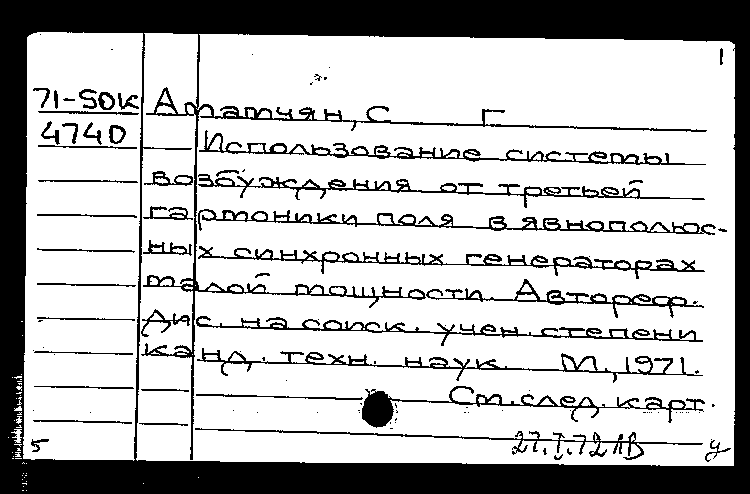 1
71-50К Аматчян, С Г
4740 Использование системы
возбуждения от третьей
гармоники поля в явнополюс-
ных синхронных генераторах
малой мощности. Автореф.
дис. на соиск. учен. степени
канд. техн. наук. М., 1971.
См. след. карт.
5 27.I.72 ЛВ у